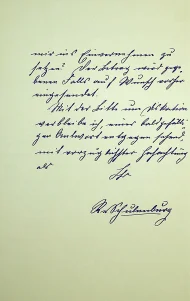 mir ins Einvernehmen zu
setzen. Der Betrag wird gege-
benen Falls auf Wunsch vorher
eingesendet.
Mit der Bitte um Diskretion
verbleibe ich, einer baldgefälli-
gen Antwort entgegen sehend,
mit vorzüglichster Hochachtung
als
Ihr
R v Schulenburg